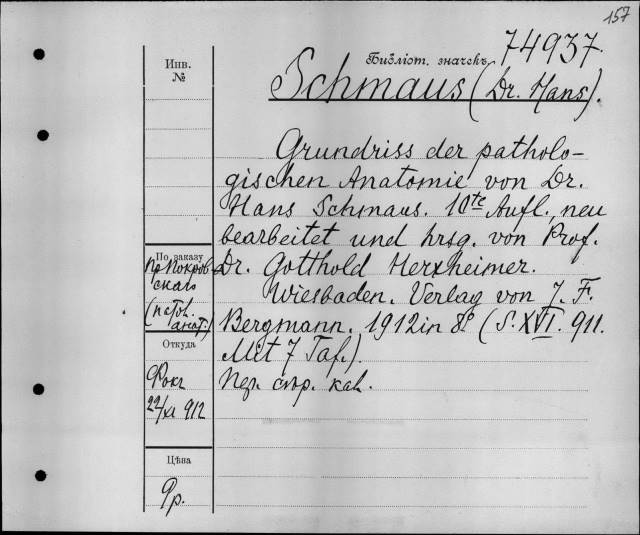 157
Библіот. значекъ 74937.
Инв.
№
Schmaus (Dr. Hans).
Grundriss der patholo-
gischen Anatomie von Dr.
Hans Schmaus. 10te Aufl., neu
bearbeitet und hrsg. von Prof.
Dr. Gotthold Herxheimer.
Wiesbaden. Verlag von J. F.
Bergmann. 1912 in 8º (S. XVI. 911.
Mit 7 Taf.).
По заказу
Пр. Покров-
скаго
(патол.
анат.)
Откуда
22/XI 912
Цѣна
9р.